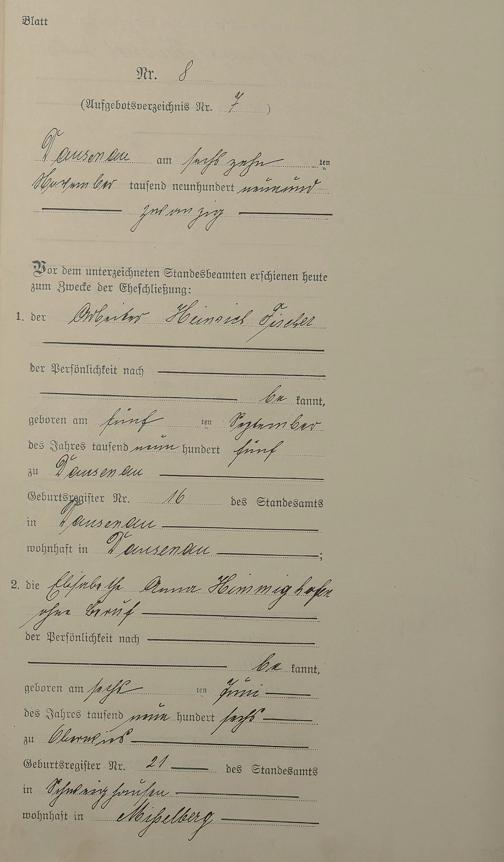 Blatt
Nr. 8
(Aufgebotsverzeichnis Nr. 7)
Dausenau am sechszehn ten
November tausend neunhundert neunund
zwanzig
Vor dem unterzeichneten Standesbeamten erschienen heute
zum Zwecke der Eheschließung:
1. der Arbeiter Heinrich Fischer
der Persönlichkeit nach
be kannt,
geboren am fünf ten September
des Jahres tausend neun hundert fünf
zu Dausenau
Geburtsregister Nr. 16 des Standesamts
in Dausenau
wohnhaft in Dausenau;
2. die Elisabethe Anna Himmighofen
ohne Beruf
der Persönlichkeit nach
be kannt,
geboren am sechs ten Juni
des Jahres tausend neun hundert sechs
zu Oberwies
Geburtsregister Nr. 21 des Standesamts
in Schweighausen
wohnhaft in Misselberg